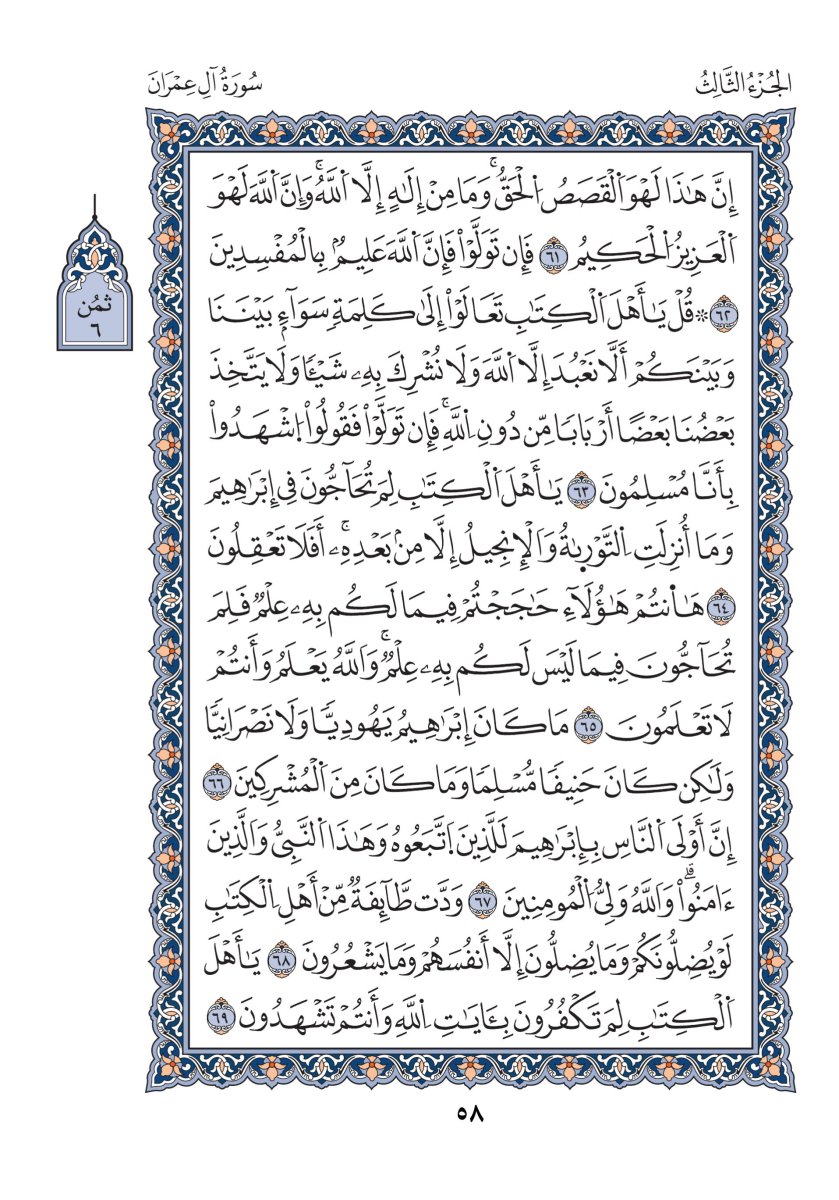 الجُزْءُ الثَّالِثُ
سُورَةُ آلِ عِمْرَانَ
إِنَّ هَٰذَا لَهْوَ اَلْقَصَصُ اُلْحَقُّۚ وَمَا مِنْ إِلَٰهٍ إِلَّا اَللَّهُۚ وَإِنَّ اَللَّهَ لَهْوَ
اَلْعَزِيزُ اُلْحَكِيمُ ٦١ فَإِن تَوَلَّوْاْ فَإِنَّ اَللَّهَ عَلِيمُۢ بِالْمُفْسِدِينَ
٦٢ ۞ قُلْ يَٰأَهْلَ اَلْكِتَٰبِ تَعَالَوْاْ إِلَىٰ كَلِمَةٖ سَوَآءِۢ بَيْنَنَا
وَبَيْنَكُمْ أَلَّا نَعْبُدَ إِلَّا اَللَّهَ وَلَا نُشْرِكَ بِهِۦ شَيْـٔٗا وَلَا يَتَّخِذَ
بَعْضُنَا بَعْضًا أَرْبَابٗا مِّن دُونِ اِللَّهِۚ فَإِن تَوَلَّوْاْ فَقُولُواْ اُشْهَدُواْ
بِأَنَّا مُسْلِمُونَ ٦٣ يَٰأَهْلَ اَلْكِتَٰبِ لِمَ تُحَآجُّونَ فِي إِبْرَٰهِيمَ
وَمَا أُنزِلَتِ اِلتَّوْرِىٰةُ وَالْإِنجِيلُ إِلَّا مِنۢ بَعْدِهِۦۚ أَفَلَا تَعْقِلُونَ
٦٤ هَٰأَنتُمْ هَٰؤُلَآءِ حَٰجَجْتُمْ فِيمَا لَكُم بِهِۦ عِلْمٞ فَلِمَ
تُحَآجُّونَ فِيمَا لَيْسَ لَكُم بِهِۦ عِلْمٞۚ وَاللَّهُ يَعْلَمُ وَأَنتُمْ
لَا تَعْلَمُونَ ٦٥ مَا كَانَ إِبْرَٰهِيمُ يَهُودِيّٗا وَلَا نَصْرَانِيّٗا
وَلَٰكِن كَانَ حَنِيفٗا مُّسْلِمٗا وَمَا كَانَ مِنَ اَلْمُشْرِكِينَ ٦٦
إِنَّ أَوْلَى اَلنَّاسِ بِإِبْرَٰهِيمَ لَلَّذِينَ اَتَّبَعُوهُ وَهَٰذَا اَلنَّبِيُّ وَالَّذِينَ
ءَامَنُواْۗ وَاللَّهُ وَلِيُّ اُلْمُومِنِينَ ٦٧ وَدَّت طَّآئِفَةٞ مِّنْ أَهْلِ اِلْكِتَٰبِ
لَوْ يُضِلُّونَكُمْ وَمَا يُضِلُّونَ إِلَّا أَنفُسَهُمْ وَمَا يَشْعُرُونَ ٦٨ يَٰأَهْلَ
اَلْكِتَٰبِ لِمَ تَكْفُرُونَ بِـَٔايَٰتِ اِللَّهِ وَأَنتُمْ تَشْهَدُونَ ٦٩
ثُمُن
٦
٥٨